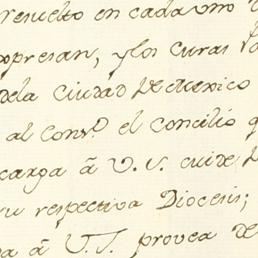 resuelto en cada uno d
expresan, y los curas Pa
dela Ciudad de Mexico
al Conv.º el Concilio q
carga â V. S. cuide d
su respectiva Diocesis;
a â V. S. provea de